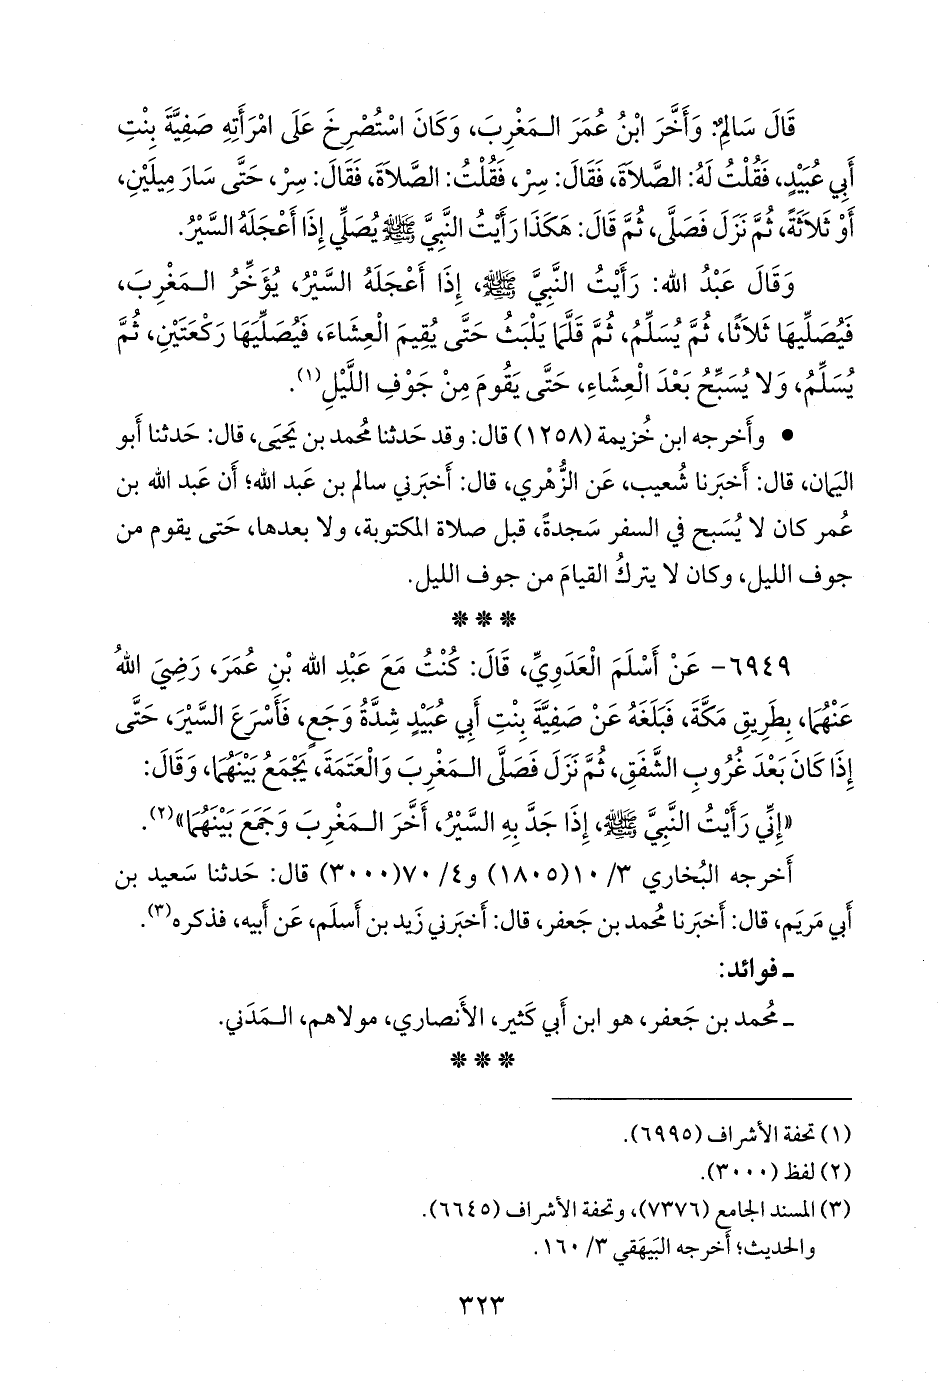 قَالَ سَالِمٌ: وَأَخَّرَ ابْنُ عُمَرَ الـمَغْرِبَ، وَكَانَ اسْتُصْرِخَ عَلَى امْرَأَتِهِ صَفِيَّةَ بِنْتِ
أَبِي عُبَيْدٍ، فَقُلْتُ لَهُ: الصَّلَاةَ، فَقَالَ: سِرْ، فَقُلْتُ: الصَّلَاةَ، فَقَالَ: سِرْ، حَتَّى سَارَ مِيلَيْنِ،
أَوْ ثَلَاثَةً، ثُمَّ نَزَلَ فَصَلَّى، ثُمَّ قَالَ: هَكَذَا رَأَيْتُ النَّبِيَّ ﷺ يُصَلِّي إِذَا أَعْجَلَهُ السَّيْرُ.
وَقَالَ عَبْدُ الله: رَأَيْتُ النَّبِيَّ ﷺ، إِذَا أَعْجَلَهُ السَّيْرُ، يُؤَخِّرُ الـمَغْرِبَ،
فَيُصَلِّيهَا ثَلَاثًا، ثُمَّ يُسَلِّمُ، ثُمَّ قَلَّمَا يَلْبَثُ حَتَّى يُقِيمَ الْعِشَاءَ، فَيُصَلِّيهَا رَكْعَتَيْنِ، ثُمَّ
يُسَلِّمُ، وَلَا يُسَبِّحُ بَعْدَ الْعِشَاءِ، حَتَّى يَقُومَ مِنْ جَوْفِ اللَّيْلِ(١).
• وأخرجه ابن خُزيمة (١٢٥٨) قال: وقد حَدثنا مُحمد بن يَحيَى، قال: حَدثنا أبو
اليَمان، قال: أَخبَرنا شُعيب، عَن الزُّهري، قال: أَخبَرني سالم بن عَبد الله؛ أن عَبد الله بن
عُمر كان لا يُسَبح في السفر سَجدةً، قبل صلاة المكتوبة، ولا بعدها، حَتى يقوم من
جوف الليل، وكان لا يتركُ القيامَ من جوف الليل.
* * *
٦٩٤٩- عَنْ أَسْلَمَ الْعَدَوِيِّ، قَالَ: كُنْتُ مَعَ عَبْدِ الله بْنِ عُمَرَ، رَضِيَ اللهُ
عَنْهُمَا، بِطَرِيقِ مَكَّةَ، فَبَلَغَهُ عَنْ صَفِيَّةَ بِنْتِ أَبِي عُبَيْدٍ شِدَّةُ وَجَعٍ، فَأَسْرَعَ السَّيْرَ، حَتَّى
إِذَا كَانَ بَعْدَ غُرُوبِ الشَّفَقِ، ثُمَّ نَزَلَ فَصَلَّى الـمَغْرِبَ وَالْعَتَمَةَ، يَجْمَعُ بَيْنَهُمَا، وَقَالَ:
«إِنِّي رَأَيْتُ النَّبِيَّ ﷺ، إِذَا جَدَّ بِهِ السَّيْرُ، أَخَّرَ الـمَغْرِبَ وَجَمَعَ بَيْنَهُمَا»(٢).
أخرجه البُخاري ٣/ ١٠(١٨٠٥) و٤/ ٧٠(٣٠٠٠) قال: حَدثنا سَعيد بن
أبي مَريَم، قال: أَخبَرنا مُحمد بن جَعفر، قال: أَخبَرني زَيد بن أَسلَم، عَن أبيه، فذكره(٣).
ـ فوائد:
ـ مُحمد بن جَعفر، هو ابن أَبي كَثير، الأَنصاري، مولاهم، الـمَدَني.
* * *
(١) تحفة الأشراف (٦٩٩٥).
(٢) لفظ (٣٠٠٠).
(٣) المسند الجامع (٧٣٧٦)، وتحفة الأشراف (٦٦٤٥).
والحديث؛ أخرجه البَيهَقي ٣/ ١٦٠.
٣٢٣